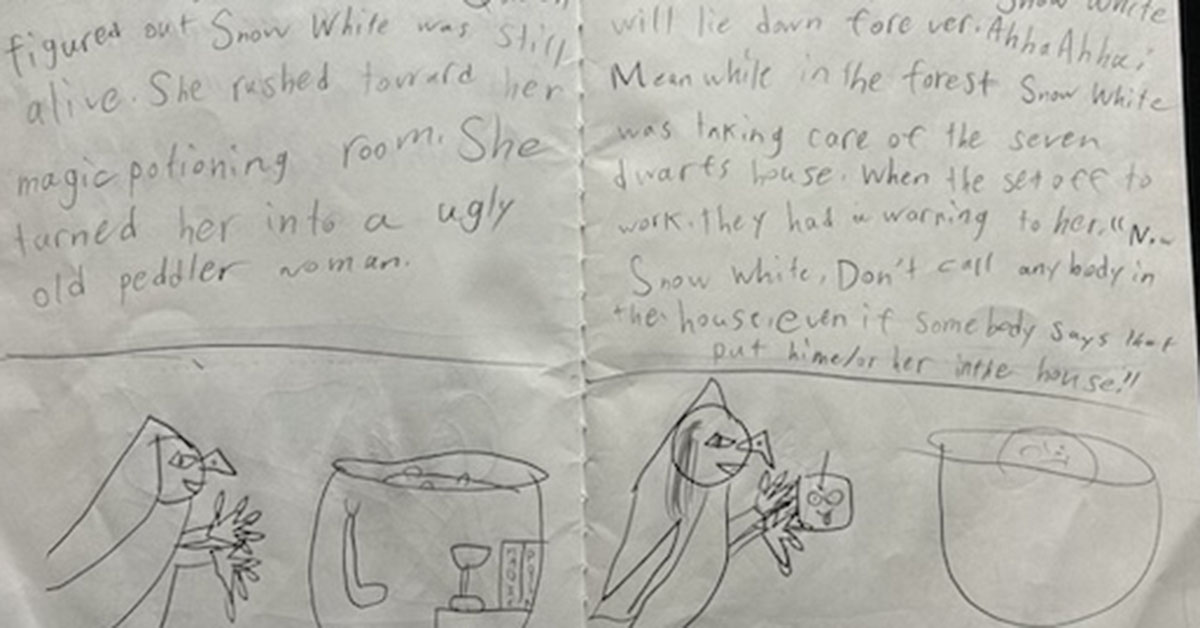 figured out Snow White was still
alive. She rushed toward her
magic potioning room. She
turned her into a ugly
old peddler woman.
Snow White
will lie down fore ver. Ahha Ahha!
Mean while in the forest Snow White
was taking care of the seven
dwarfs house. When the set off to
work. they had a warning to her. "Now
Snow White, Don't call any body in
the house, even if some body says that
put hime/or her in the house!"